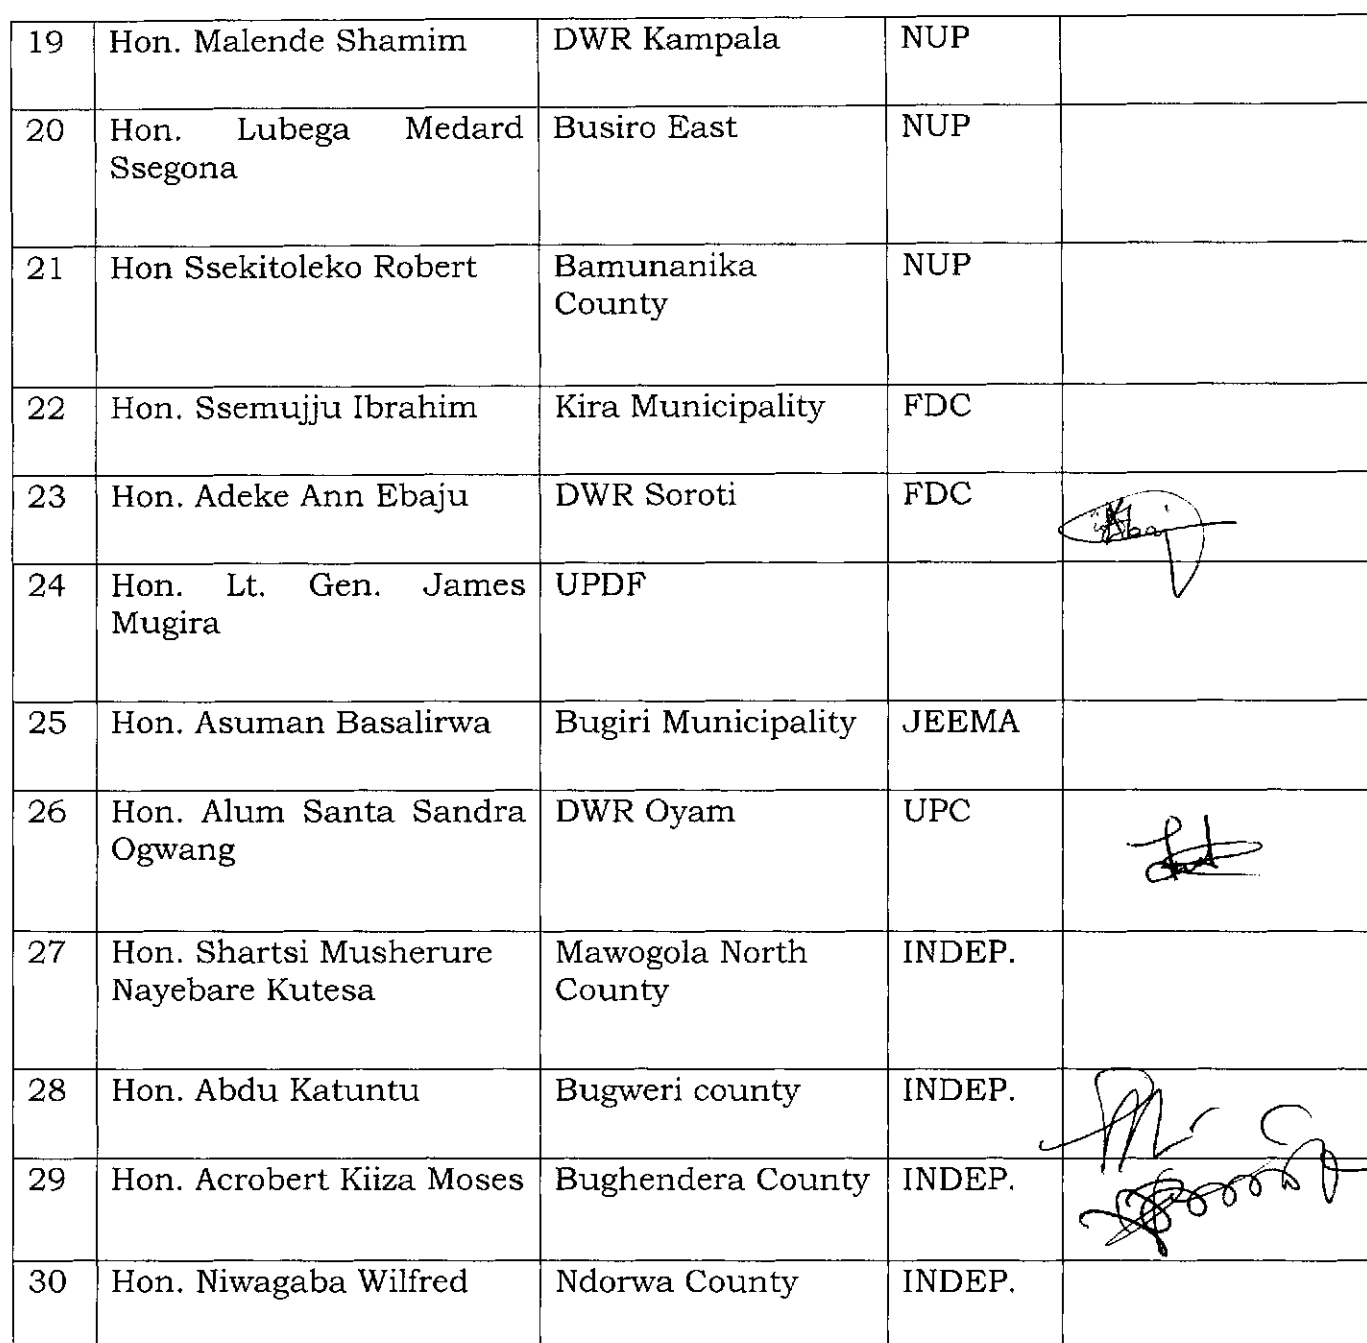 19 Hon. Malende Shamim DWR Kampala NUP
20 Hon. Lubega Medard Busiro East NUP
Ssegona
21 Hon Ssekitoleko Robert Bamunanika NUP
County
22 Hon. Ssemujju Ibrahim Kira Municipality FDC
23 Hon. Adeke Ann Ebaju DWR Soroti FDC
24 Hon. Lt. Gen. James UPDF
Mugira
25 Hon. Asuman Basalirwa Bugiri Municipality JEEMA
26 Hon. Alum Santa Sandra DWR Oyam UPC
Ogwang
27 Hon. Shartsi Musherure Mawogola North INDEP.
Nayebare Kutesa County
28 Hon. Abdu Katuntu Bugweri county INDEP.
29 Hon. Acrobert Kiiza Moses Bughendera County INDEP.
30 Hon. Niwagaba Wilfred Ndorwa County INDEP.